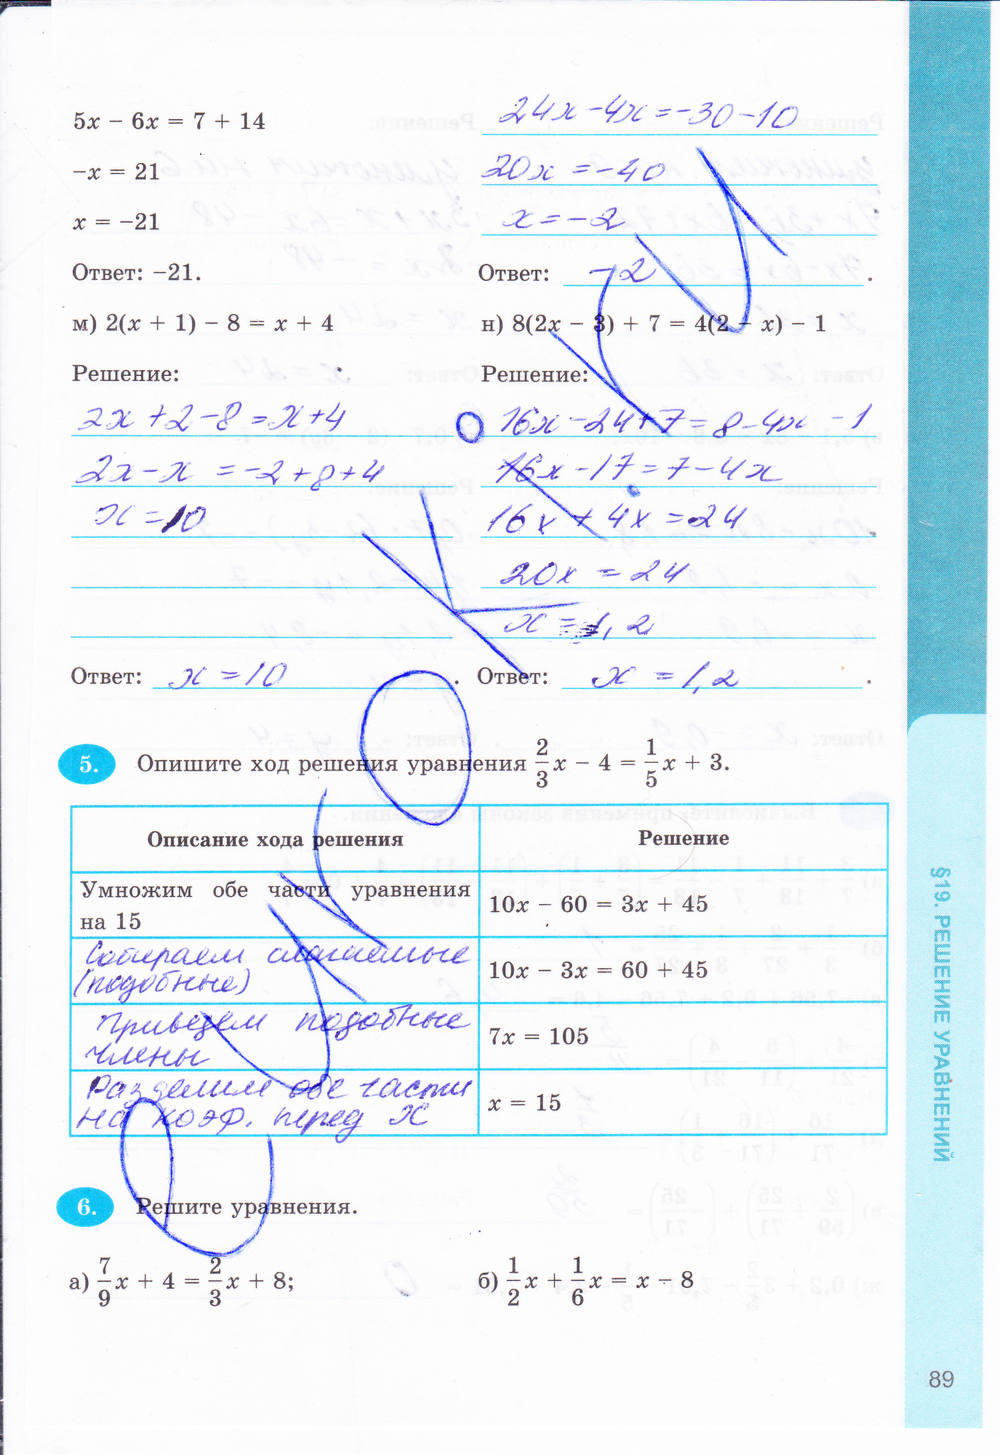 5x − 6x = 7 + 14
−x = 21
x = −21
Ответ: −21.
24x − 4x = −30 − 10
20x = −40
x = −2
Ответ: −2.
м) 2(x + 1) − 8 = x + 4
Решение:
2x + 2 − 8 = x + 4
2x − x = −2 + 8 + 4
x = 10
Ответ: x = 10.
н) 8(2x − 3) + 7 = 4(2 − x) − 1
Решение:
16x − 24 + 7 = 8 − 4x − 1
16x − 17 = 7 − 4x
16x + 4x = 24
20x = 24
x = 1,2
Ответ: x = 1,2.
5. Опишите ход решения уравнения 2/3 x − 4 = 1/5 x + 3.
Описание хода решения
Решение
Умножим обе части уравнения
на 15
10x − 60 = 3x + 45
Собираем слагаемые
(подобные)
10x − 3x = 60 + 45
Приведем подобные
члены
7x = 105
Разделим обе части
на коэф. перед x
x = 15
6. Решите уравнения.
а) 7/9 x + 4 = 2/3 x + 8;
б) 1/2 x + 1/6 x = x − 8
§19. РЕШЕНИЕ УРАВНЕНИЙ
89